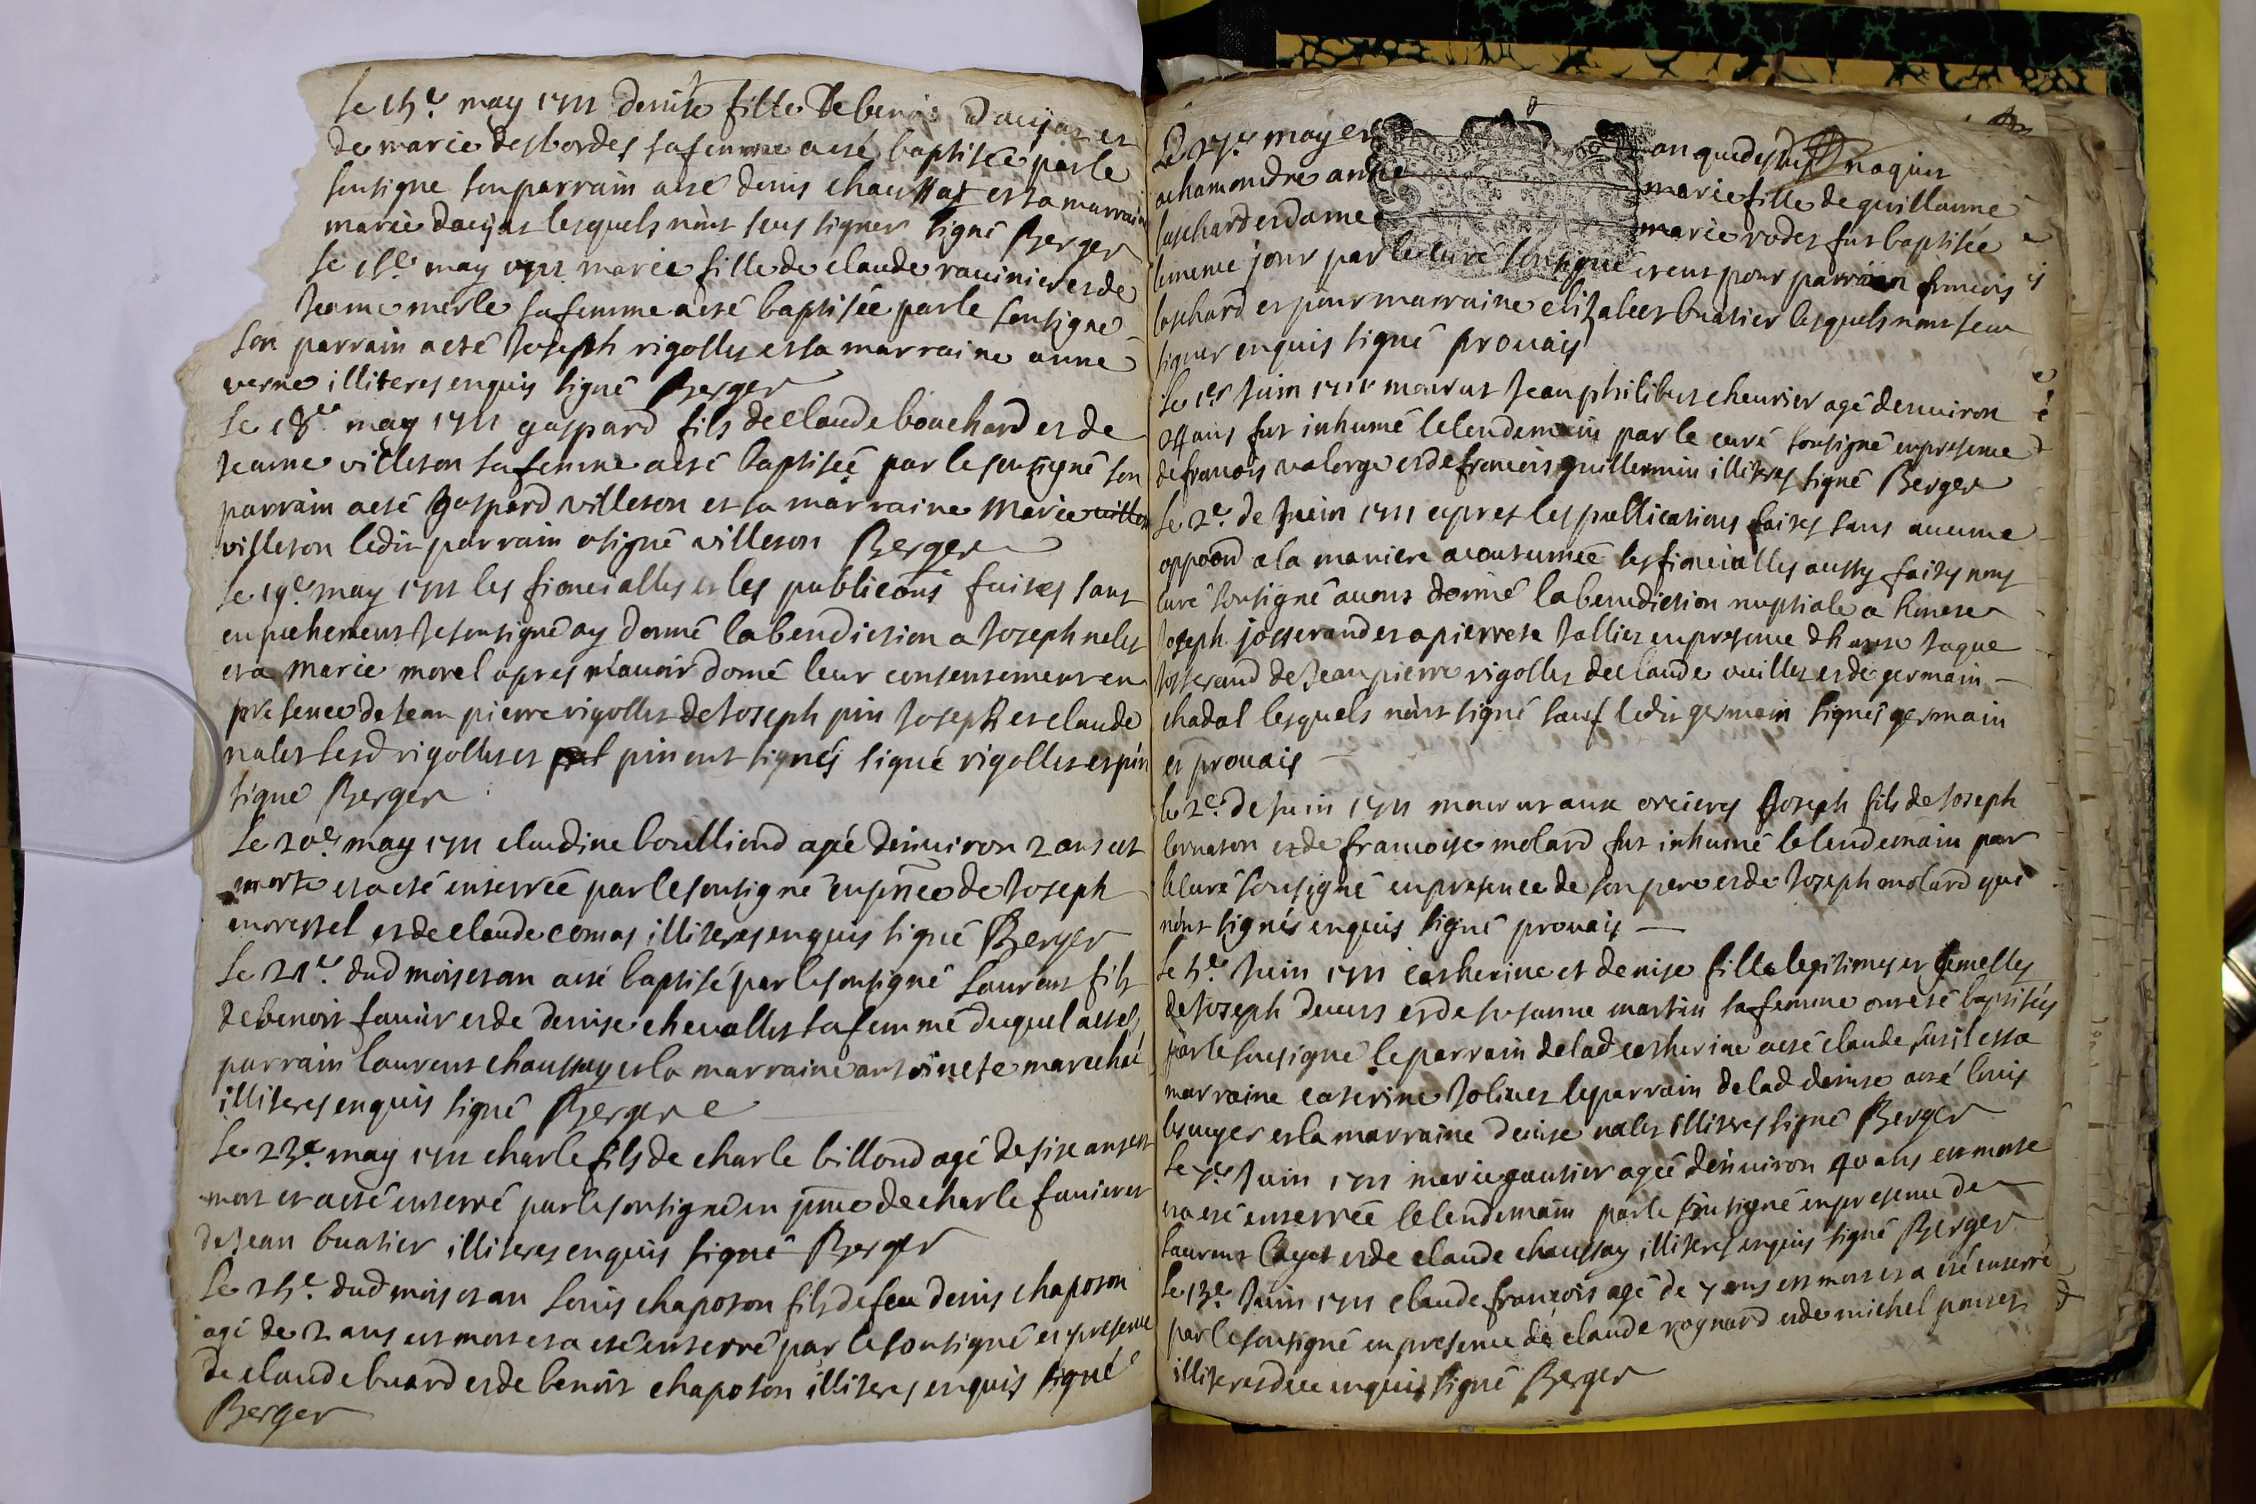 Le 15e may 1711 denise fille de benoist daujat et
de marie desbordes sa femme a esté baptisée par le
sousigné son parrain a esté denis chaussat et sa marraine
marie daujat lesquels n'ont seus signer signé Berger
Le 16e may 1711 marie fille de claude rauinier et de
Jeanne merle sa femme a esté baptisée par le sousigné
son parrain a esté Joseph rigollet et sa marraine anne
verne illiteres enquis signé Berger
Le 18e may 1711 gaspard fils de claude bouchard et de
Jeanne villeson sa femme a esté baptiséé par le sousigné son
parrain a esté gaspard villeson et sa marraine Marie
villeson ledit parrain a signé villeson Berger
Le 19e may 1711 les fiancialles et les publicaôns faites sans
enpechement Je sousigné ay donné la bendiction a Joseph nalet
et a Marie morel apres m'auoir donné leur consentement en
presence de Jean pierre rigollet de Joseph pin Joseph et claude
nalet lesd rigollet et pin ont signés signé rigollet et pin
signé Berger
Le 20e may 1711 claudine boulliond agé d'enuiron 2 ans est
morte et a esté enterréé par le sousigné en pnce de Joseph
moressel et de claude comas illiteres enquis signé Berger
Le 21e dud mois et an a esté baptisé par le sousigné Laurent fils
de benoist fauier et de denise cheuallet sa femme duquel a esté
parrain laurent chaussay et la marraine antoinete marechal
illiteres enquis signé Berger
Le 23e may 1711 charle fils de charle billoud agé de sise ans est
mort et a esté enterré par le sousigné en pnce de charle fauier et
de Jean buatier illiteres enquis signé Berger
Le 25e dud mois et an Louis chaposon fils de feu denis chaposon
agé de 2 ans est mort et a esté enterré par le sousigné en presence
de claude buard et de benoist chaposon illiteres enquis signé
Berger
Le 27e may et an que dessus naquit
a chamondre marie fille de guillaume
bouchard et dame marie rodet fut baptisée
le meme jour par le curé sousigné et eut pour parrain francois
bouchard et pour marraine elizabeet buatier lesquels n'ont seu
signer enquis signé prouais
Le 1er Juin 1711 mourut Jean philibert cheurier agé d'enuiron
ans fut inhumé le lendemain par le curé sousigné en presence
de francois valorge et de francois guillermin illiteres signé Berger
Le 2e de Juin 1711 apres les publications faites sans aucune
oppoôn a la maniere acoutumée les fiancialles aussy faites nous
curé sousigné auons donné la benediction nuptiale a honeste
Joseph josserand et a pierrete Jallier en presence d'honeste Jaque
Josserand de Jean pierre rigollet de claude vuillet et de germain
chadal lesquels n'ont signé sauf ledit germain signés germain
et prouais
le 2e de Juin 1711 mourut aux orcieres Joseph fils de Joseph
bernaton et de francoise molard fut inhumé le lendemain par
le curé sousigné en presence de son pere et de Joseph molard qui
n'ont signés enquis signé prouais
Le 5e Juin 1711 catherine et denise fille legitimes et Jemelles
de Joseph deuers et de susanne martin sa femme ont esté baptisées
par le sousigné le parrain de lad catherine a esté claude fusil et sa
marraine caterine Joliuet le parrain de lad denise a esté louis
berruyer et la marraine denise nalet illiteres signé Berger
Le 7e Juin 1711 marie gautier agéé d'enuiron 40 ans est morte
et a esté enterréé le lendemain par le sousigné en presence de
Laurent layat et de claude chaussay illiteres enquis signé Berger
Le 13e Juin 1711 claude francois agé de 7 ans est mort et a esté enterré
par le sousigné en presence de claude rognard et de michel ponset
illiteres de ce enquis signé Berger